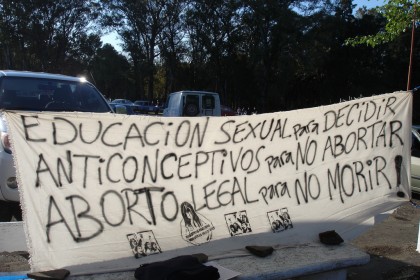 EDUCACION SEXUAL para DECIDIR
ANTICONCEPTIVOS para NO ABORTAR
ABORTO LEGAL para NO MORIR!